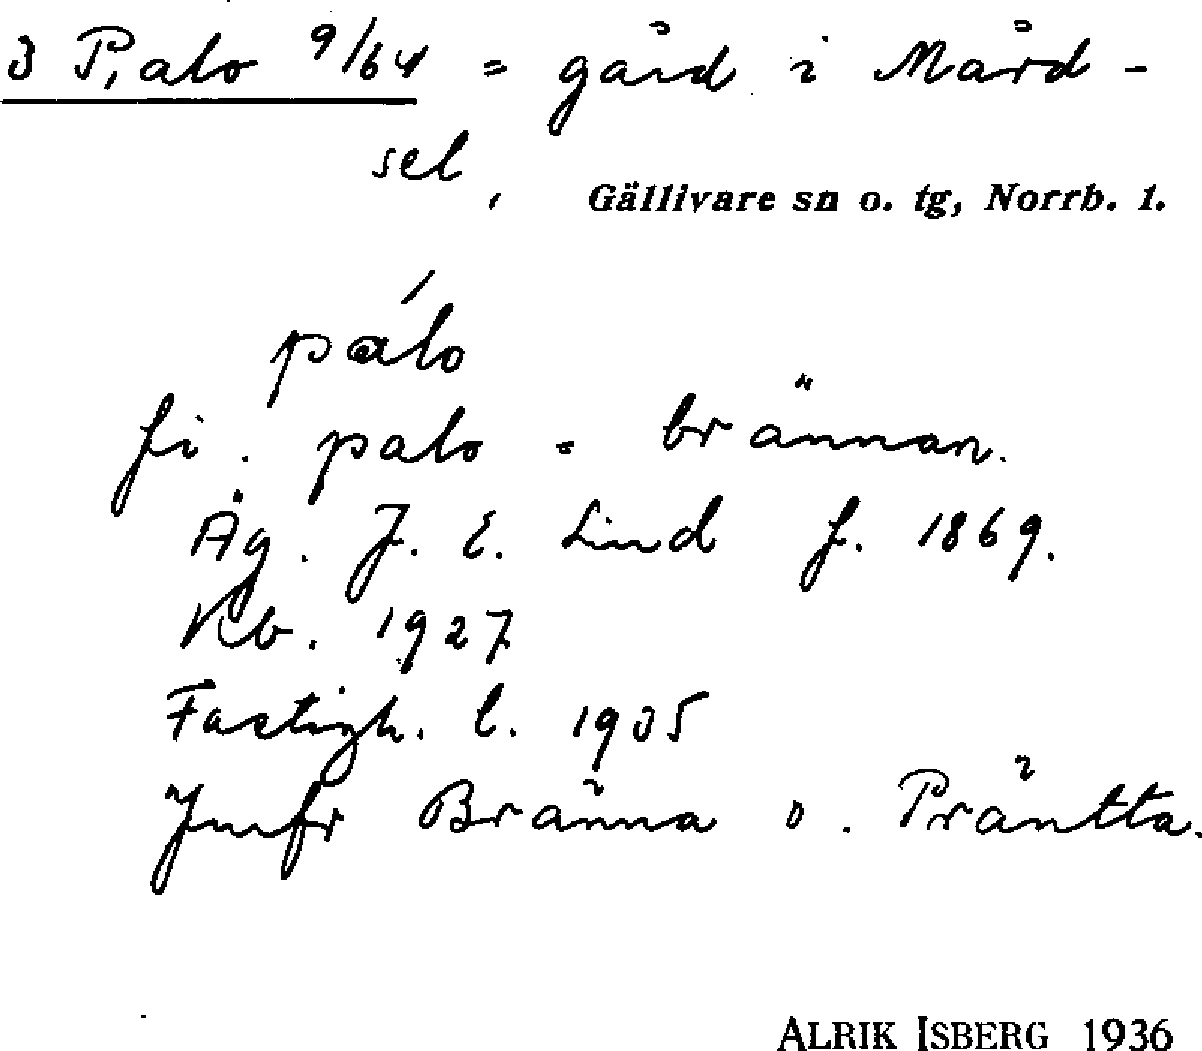 3 Palo 9/64 = gård i Mård-
sel, Gällivare sn o. tg, Norrb. l.
pálo
fi. palo = brännan.
Äg. J. E. Lind f. 1869.
Kb. 1927
Fastigh. l. 1935
Jmfr Bränna o. Präntta.
ALRIK ISBERG 1936